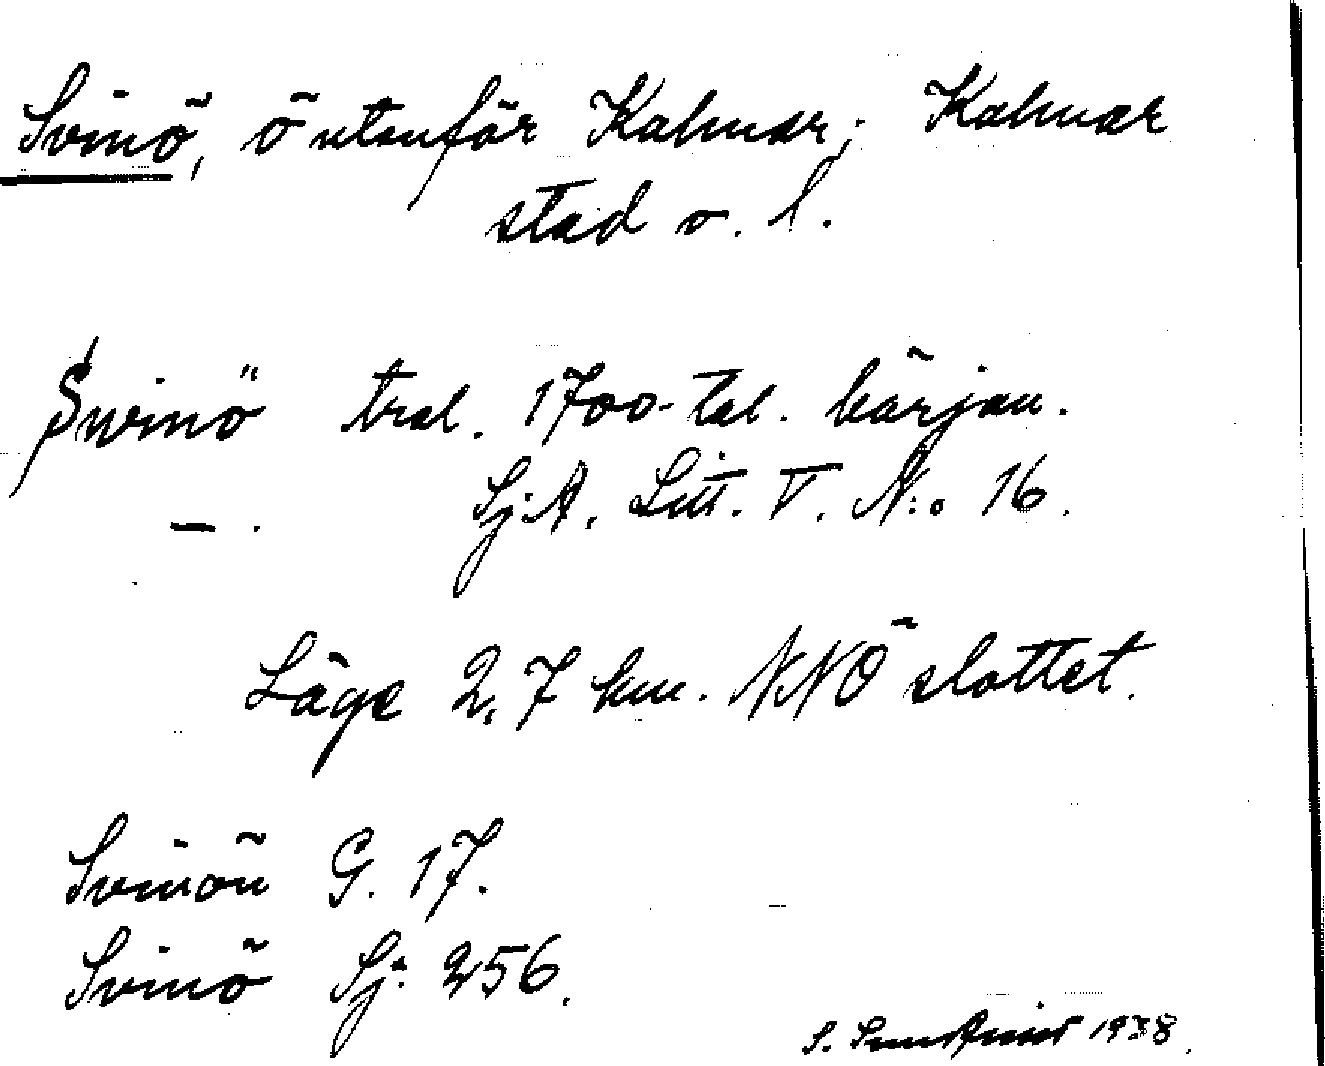 Svinö, ö utanför Kalmar; Kalmar
stad o. l.
Swinö trol. 1700-tal. början.
— . Sj:A. Litt. V. N:o 16.
Läge 2,7 km. NNÖ slottet.
Svinön G. 17.
Svinö Sj: 256.
S. 1938.